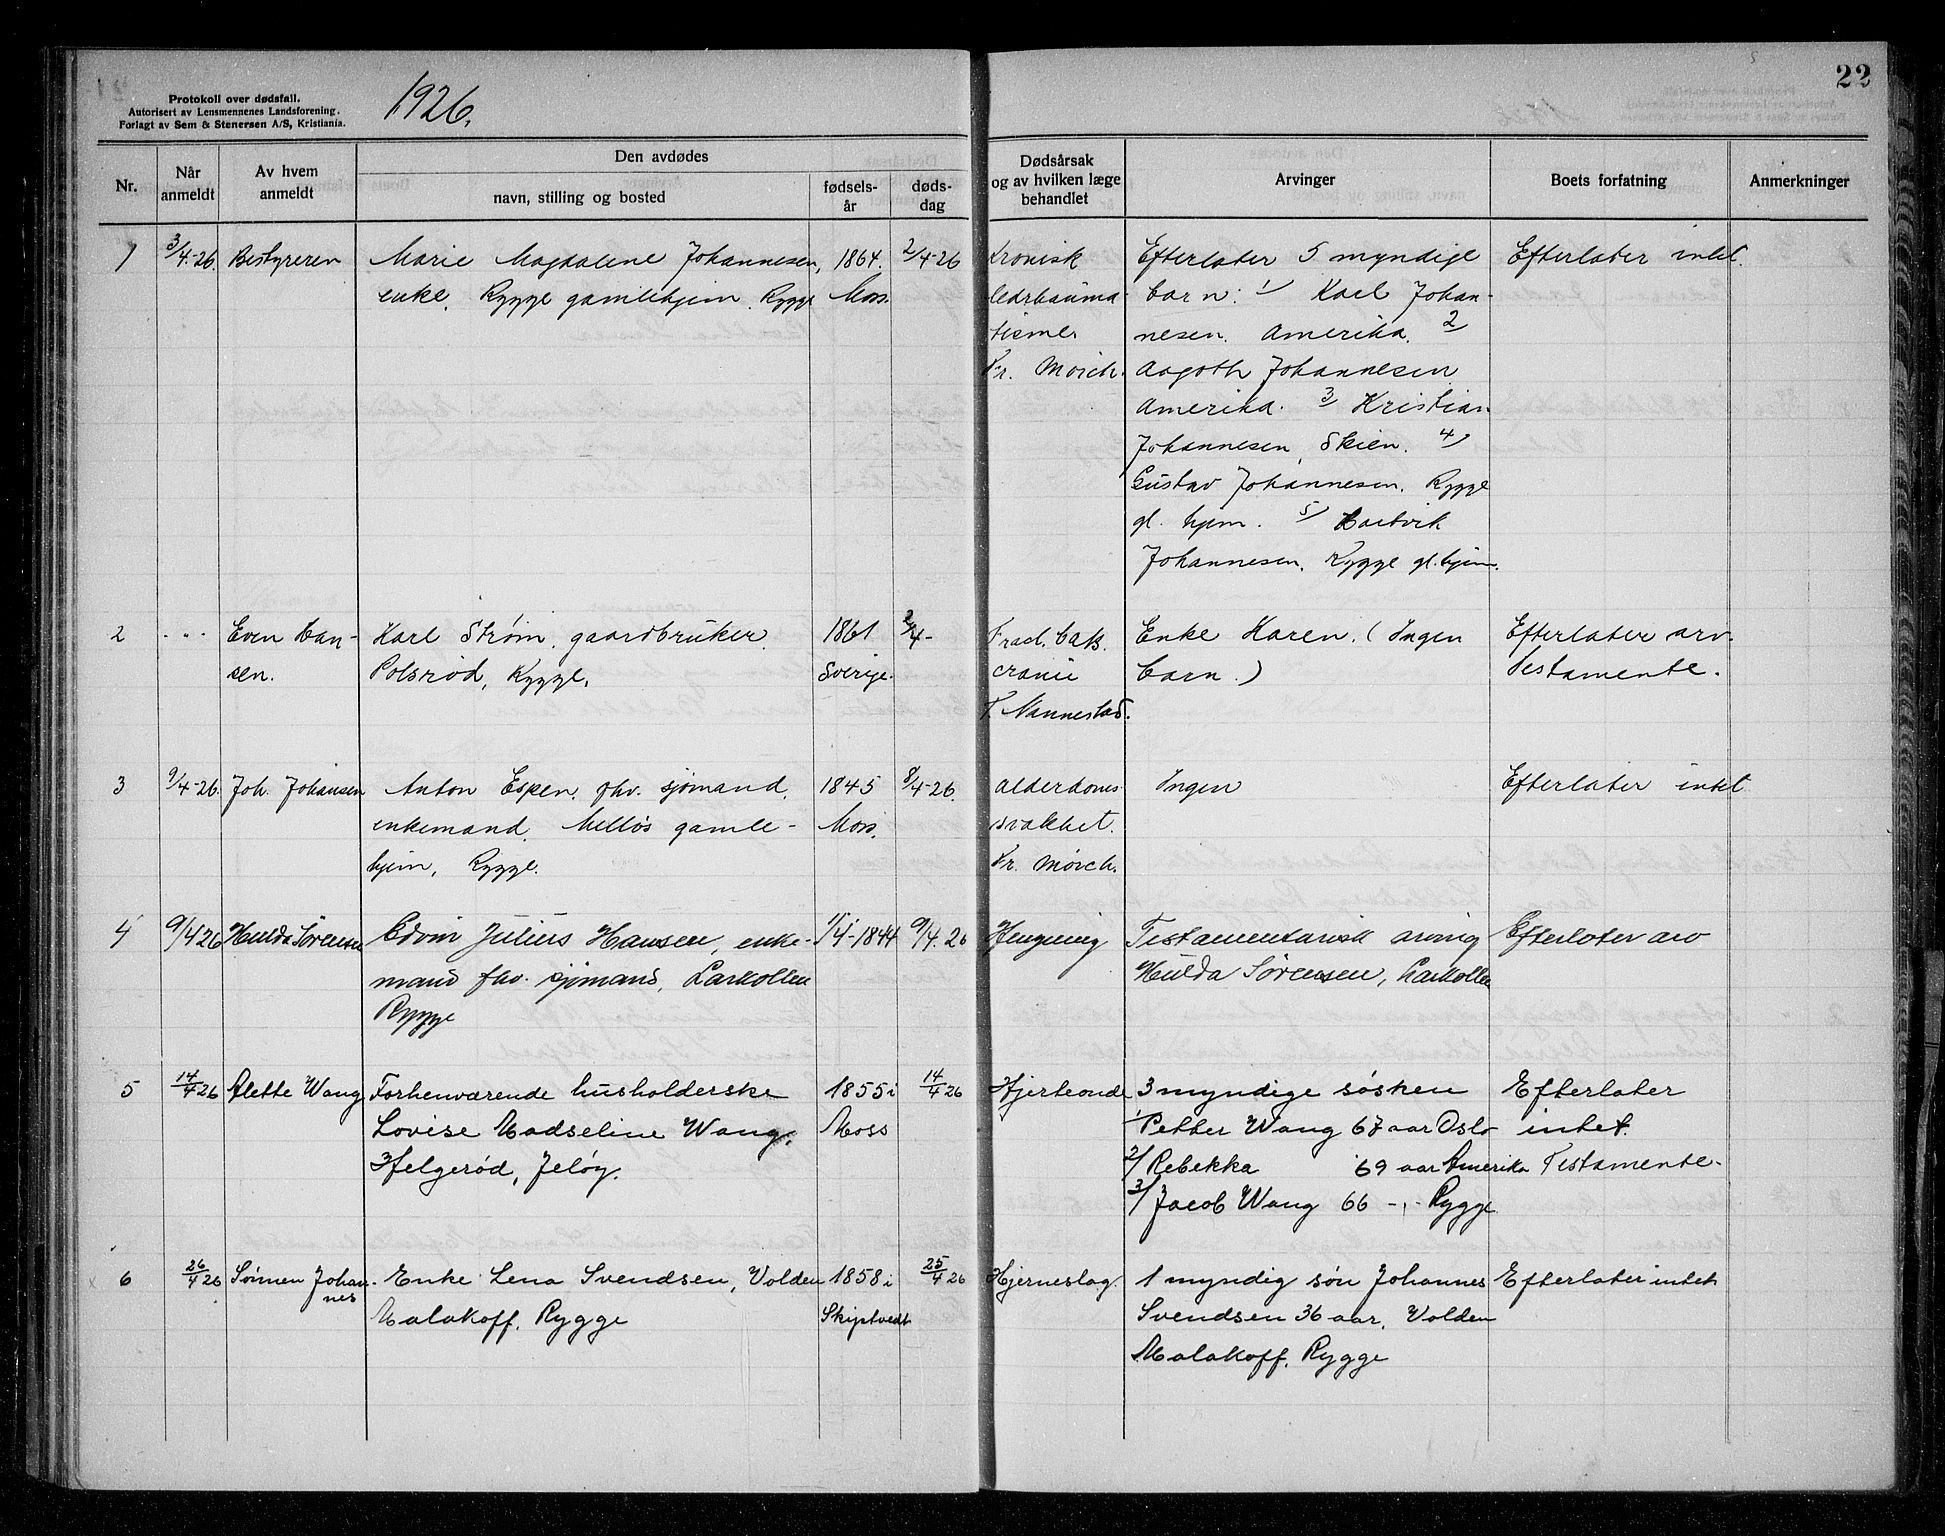 Protokoll over dødsfall.
Autorisert av Lensmennenes Landsforening.
Forlagt av Sem & Stenersen A/S, Kristiania.
1926.
22
Nr.
Når anmeldt
Av hvem anmeldt
Den avdødes
navn, stilling og bosted
fødsels-år
døds-dag
Dødsårsak og av hvilken læge behandlet
Arvinger
Boets forfatning
Anmerkninger
1
3/4-26.
Bestyreren
Marie Magdalene Johannesen,
enke. Rygge gamlehjem. Rygge
1864.
Moss.
2/4-26
Kronisk
tisme.
Fr. Mørch.
Efterlater 5 myndige
barn: 1/ Karl Johan-
nesen. Amerika. 2/
Aagoth Johannesen
Amerika. 3/ Kristian
Johannesen, Skien. 4/
Gustav Johannesen. Rygge
gl. hjem. 5/ Hartvik
Johannesen, Rygge gl. hjem.
Efterlater intet.
2
- " -
Even Han-
sen.
Karl Strøm, gaardbruker.
Polsrød, Rygge.
1861
Sverige.
2/4-
Fract. bas.
cranii
T. Nannestad.
Enke Karen. (Ingen
barn.)
Efterlater arv.
Testamente.
3
9/4-26.
Joh. Johansen
Anton Espen, fhv. sjømand,
enkemand. Melløs gamle-
hjem, Rygge.
1845
Moss.
8/4-26.
Alderdoms-
svakhet.
Fr. Mørch.
Ingen
Efterlater intet.
4
9/4 26
Hulda Sørensen
Edvin Julius Hansen, enke-
mand fhv. sjømand, Larkollen
Rygge
1/4-1844
9/4. 26
Hengning
Testamentarisk arving
Hulda Sørensen, Larkollen
Efterlater arv
5
14/4 26
Alette Wang
Forhenværende husholderske
Lovise Madseline Wang.
Helgerød, Jeløy.
1855 i
Moss
14/4 26
Hjerteonde
3 myndige søsken
1/ Petter Wang 67 aar Oslo
2/ Rebekka 69 aar Amerika
3/ Jacob Wang 66 -,- Rygge
Efterlater
intet.
Testamente.
6
26/4 26
Sønnen Johan-
nes
Enke Lena Svendsen, Volden
Malakoff, Rygge
1858 i
Skiptvedt
25/4 26
Hjerneslag.
1 myndig søn Johannes
Svendsen 36 aar, Volden
Malakoff, Rygge
Efterlater intet